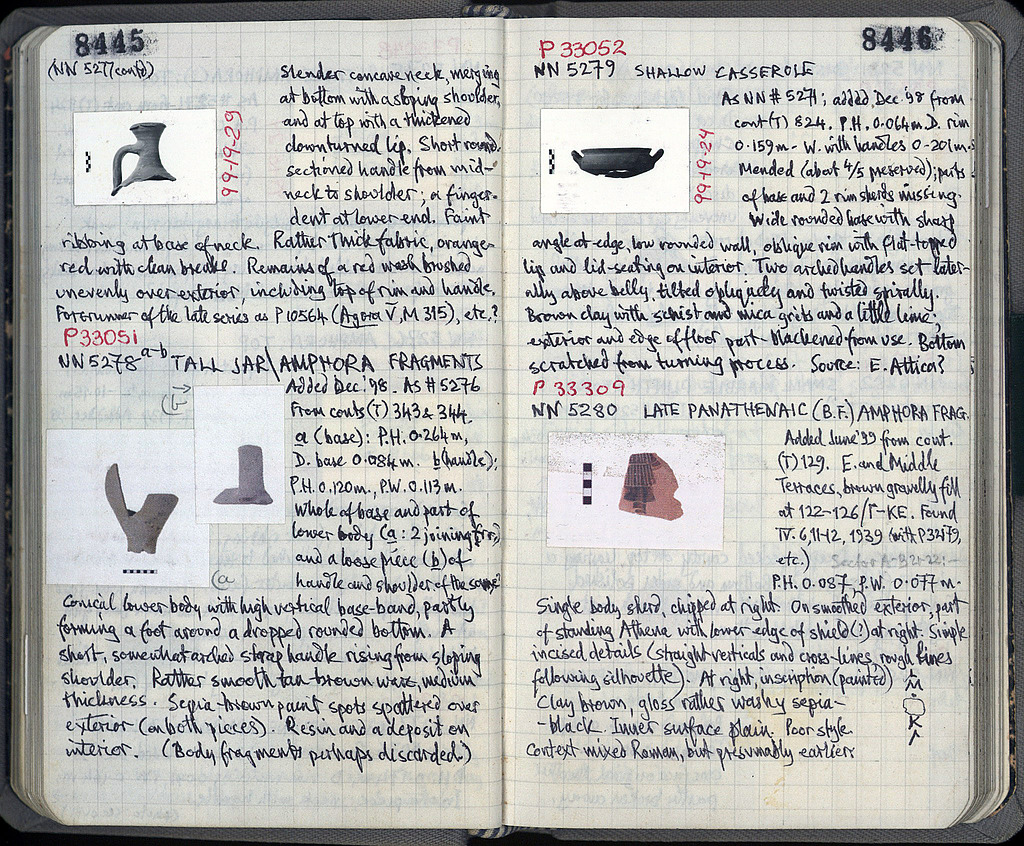 8445
(NN 5277(contd)
Slender concave neck, merging
at bottom with a sloping shoulder,
and at top with a thickened
downturned lip. Short round-
sectioned handle from mid-
neck to shoulder; a finger-
dent at lower end. Faint
99-19-29
ribbing at base of neck. Rather thick fabric, orange-
red with clean breaks. Remains of a red wash brushed
unevenly over exterior, including top of rim and handle.
Forerunner of the late series as P10564 (Agora V, M 315), etc.?
P33051
NN 5278 a-b TALL JAR\AMPHORA FRAGMENTS
Added Dec. '98. As # 5276
from conts (T) 343 & 344.
a (base): P.H. 0.264 m,
D. base 0.084 m. b (handle):
P.H. 0.120 m., P.W. 0.113 m.
Whole of base and part of
lower body (a: 2 joining frr.)
and a loose piece (b) of
handle and shoulder of the same?
(b
(a
Conical lower body with high vertical base-band, partly
forming a foot around a dropped rounded bottom. A
short, somewhat arched strap handle rising from sloping
shoulder. Rather smooth tan-brown ware, medium
thickness. Sepia-brown paint spots spattered over
exterior (on both pieces). Resin and a deposit on
interior. (Body fragments perhaps discarded.)
8446
P 33052
NN 5279 SHALLOW CASSEROLE
As NN # 5271; added Dec '98 from
cont (T) 824. P.H. 0.064 m. D. rim
0.159 m. W. with handles 0.201 m.
Mended (about 4/5 preserved); parts
of base and 2 rim sherds missing.
Wide rounded base with sharp
99-19-24
angle at edge, low rounded wall, oblique rim with flat-topped
lip and lid-seating on interior. Two arched handles set later-
ally above belly, tilted obliquely and twisted spirally.
Brown clay with schist and mica grits and a little lime;
exterior and edge of floor part-blackened from use. Bottom
scratched from turning process. Source: E. Attica?
P 33309
NN 5280 LATE PANATHENAIC (B.F.) AMPHORA FRAG.
Added June '99 from cont.
(T) 129. E. and Middle
Terraces, brown gravelly fill
at 122-126/Γ-ΚΕ. Found
IV. 6, 11-12, 1939 (with P32479,
etc.)
P.H. 0.087, P.W. 0.077 m.
Single body sherd, chipped at right. On smoothed exterior, part
of standing Athena with lower edge of shield(?) at right. Simple
incised details (straight verticals and cross-lines, rough lines
following silhouette). At right, inscription (painted)
Clay brown, gloss rather washy sepia-
-black. Inner surface plain. Poor style.
Context mixed Roman, but presumably earlier.